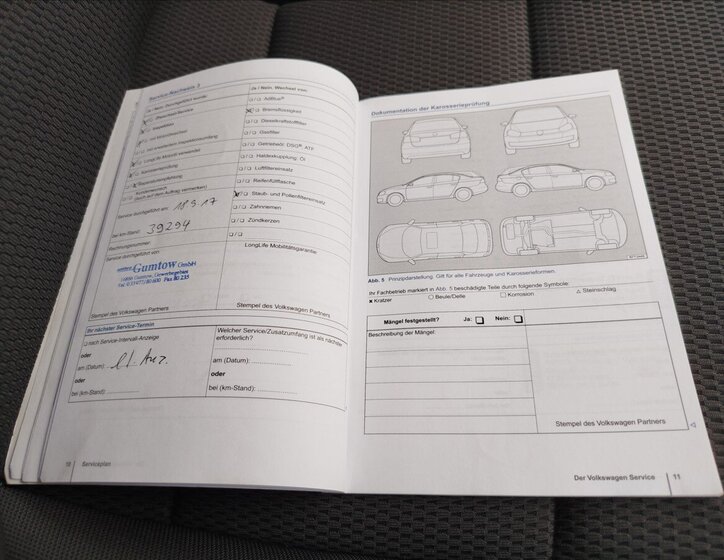 Service-Nachweis 3
Ja / Nein, Durchgeführt wurde:
Inspektion
LongLife Motoröl verwendet
Karosserieprüfung
Service durchgeführt am: 18.9.17
bei km-Stand: 39294
Rechnungsnummer:
Service durchgeführt von:
Gumtow GmbH
Stempel des Volkswagen Partners
Ja / Nein, Wechsel von:
❑ / ❑ AdBlue®
❑ Bremsflüssigkeit
❑ / ❑ Dieselkraftstofffilter
❑ / ❑ Gasfilter
❑ / ❑ Getriebeöl: DSG®, ATF
❑ / ❑ Haldexkupplung: Öl
❑ / ❑ Luftfiltereinsatz
❑ / ❑ Reifenfüllflasche
❑ Staub- und Pollenfiltereinsatz
❑ / ❑ Zahnriemen
❑ / ❑ Zündkerzen
❑ / ❑
LongLife Mobilitätsgarantie
Stempel des Volkswagen Partners
Ihr nächster Service-Termin
❑ nach Service-Intervall-Anzeige
oder
am (Datum):
oder
bei (km-Stand):
Welcher Service/Zusatzumfang ist als nächste
erforderlich?
am (Datum):
oder
bei (km-Stand):
10 Serviceplan
Dokumentation der Karosserieprüfung
Abb. 5 Prinzipdarstellung. Gilt für alle Fahrzeuge und Karosserieformen.
Ihr Fachbetrieb markiert in Abb. 5 beschädigte Teile durch folgende Symbole:
× Kratzer ○ Beule/Delle □ Korrosion △ Steinschlag
Mängel festgestellt? Ja: ❑ Nein: ❑
Beschreibung der Mängel:
Stempel des Volkswagen Partners
Der Volkswagen Service 11